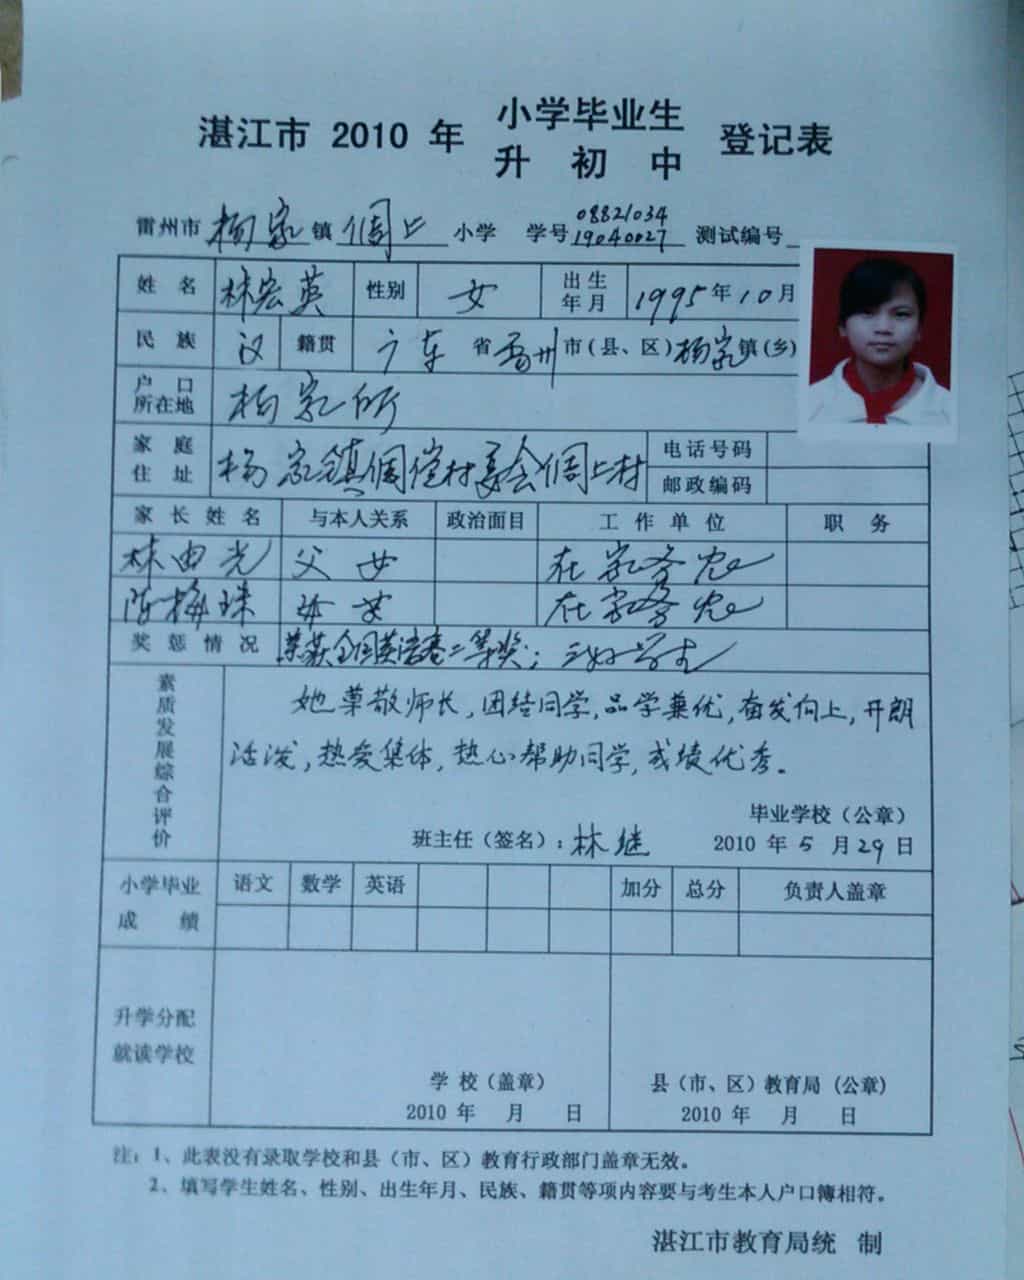 湛江市 2010 年 小学毕业生 登记表
升 初 中
雷州市 杨家 镇 倜上 小学 学号 08821034 测试编号
19040027
姓 名 林宏英 性别 女 出生年月 1995 年 10 月
民 族 汉 籍贯 广东 省 雷州 市(县、区) 杨家 镇(乡)
户 口 所在地 杨家所
家 庭 住 址 杨家镇 村委会 上村 电话号码
邮政编码
家 长 姓 名 与本人关系 政治面目 工 作 单 位 职 务
林由光 父女 在家务农
陈梅珠 母女 在家务农
奖 惩 情 况 荣获全国英语赛二等奖；三好学生
素质发展综合评价
她尊敬师长,团结同学,品学兼优,奋发向上,开朗
活泼,热爱集体,热心帮助同学,成绩优秀。
毕业学校（公章）
班主任（签名）：林继 2010 年 5 月 29 日
小学毕业 语文 数学 英语 加分 总分 负责人盖章
成 绩
升学分配
就读学校
学 校（盖章） 县（市、区）教育局（公章）
2010 年 月 日 2010 年 月 日
注：1、此表没有录取学校和县（市、区）教育行政部门盖章无效。
2、填写学生姓名、性别、出生年月、民族、籍贯等项内容要与考生本人户口簿相符。
湛江市教育局统 制